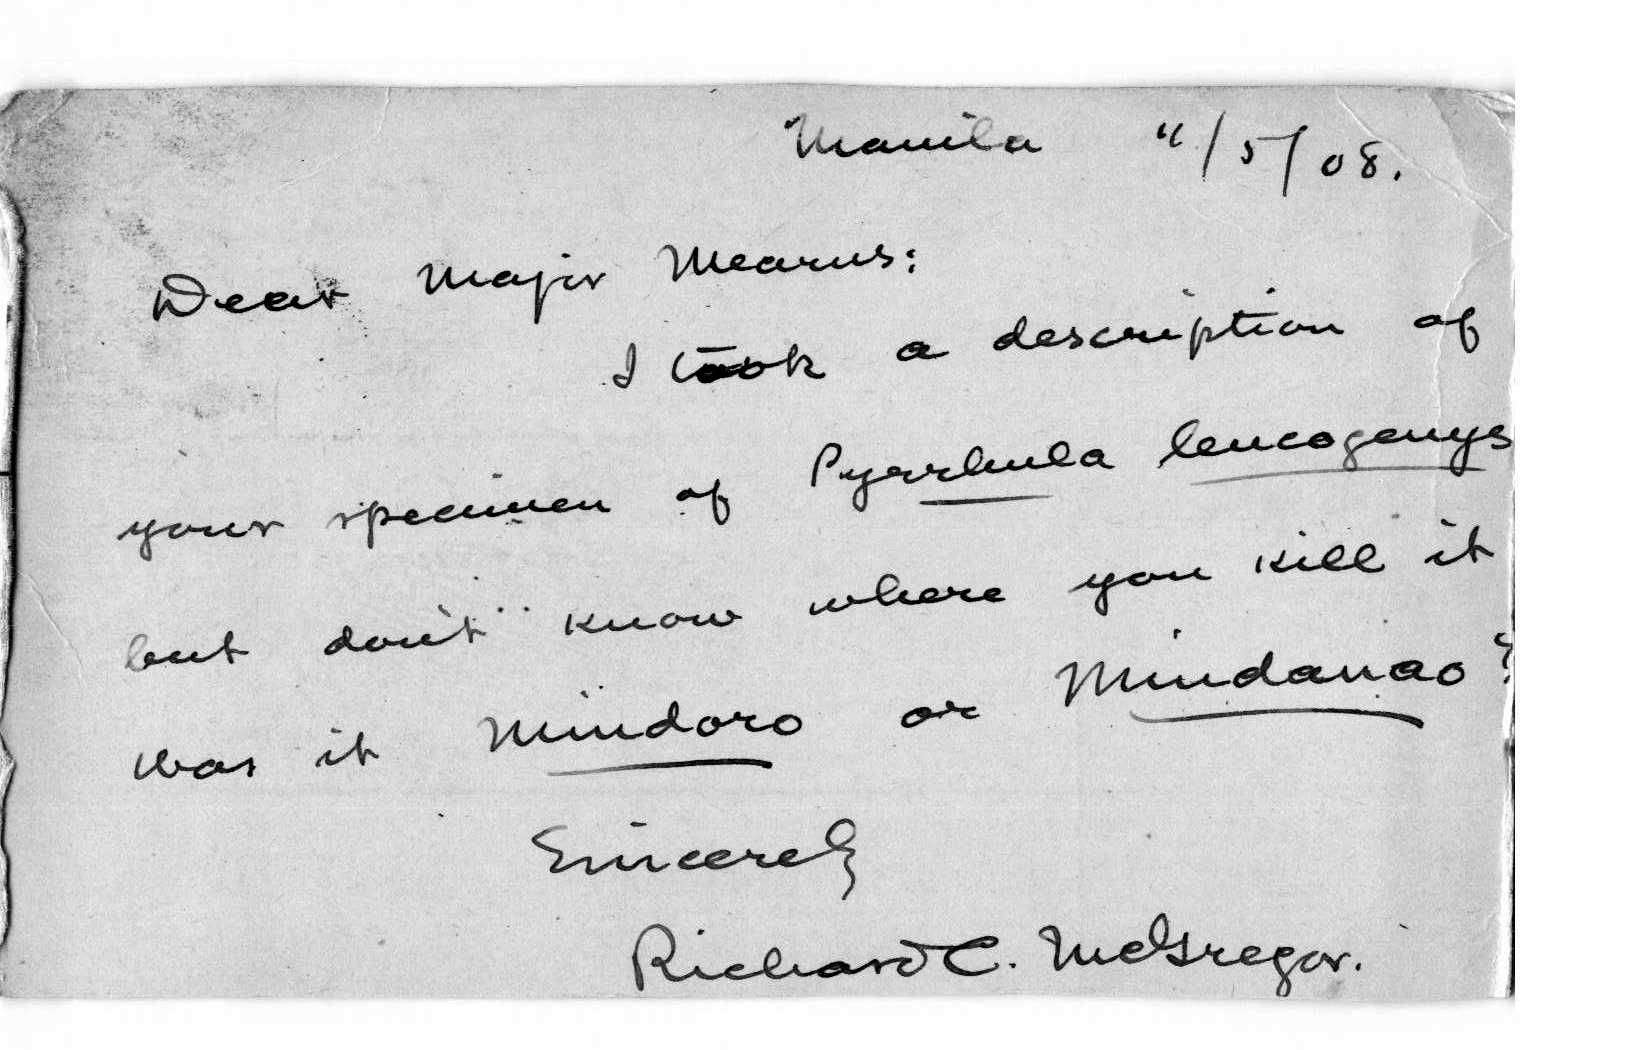 Manila 11/5/08.
Dear Major Mearns:
I took a description of
your specimen of Pyrrhula leucogenys
but don't know where you kill it
was it Mindoro or Mindanao?
Sincerely
Richard C. McGregor.